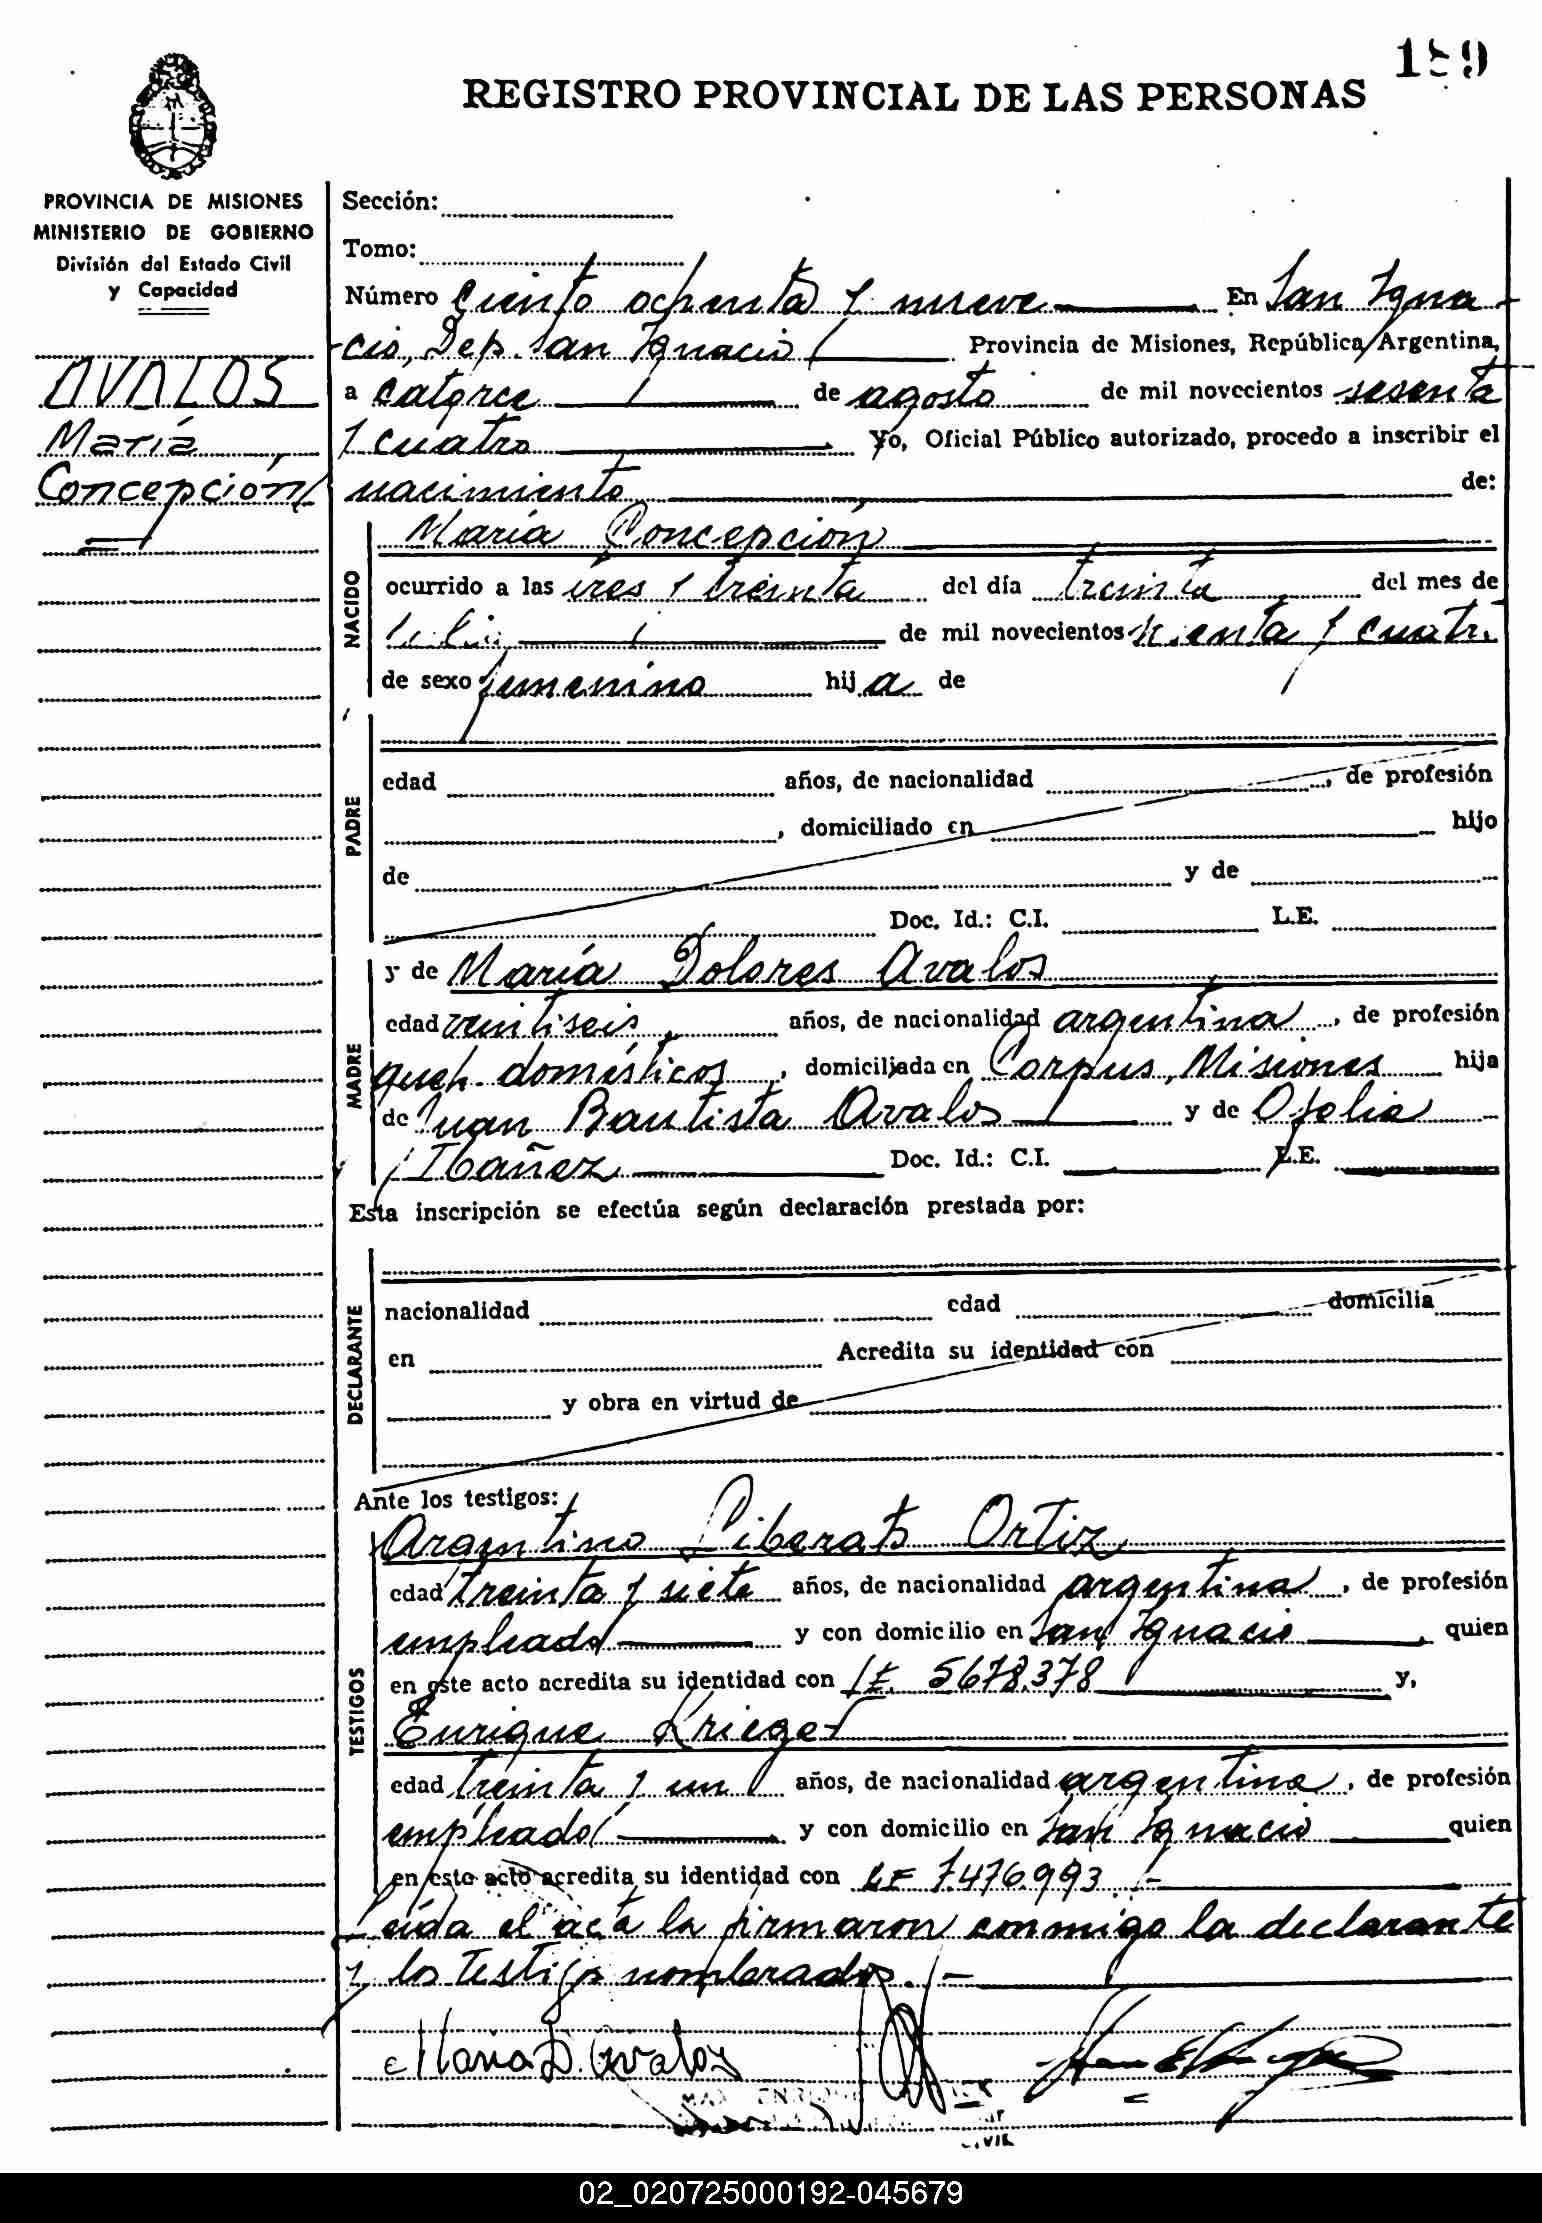 189
REGISTRO PROVINCIAL DE LAS PERSONAS
PROVINCIA DE MISIONES
MINISTERIO DE GOBIERNO
División del Estado Civil
y Capacidad
AVALOS
María
Concepción
Sección:
Tomo:
Número ciento ochenta y nueve En San Igna
cio, Dep. San Ignacio Provincia de Misiones, República Argentina,
a catorce de agosto de mil novecientos sesenta
y cuatro Yo, Oficial Público autorizado, procedo a inscribir el
nacimiento de:
NACIDO
María Concepción
ocurrido a las tres y treinta del día treinta del mes de
julio de mil novecientos sesenta y cuatro
de sexo femenino hija de
PADRE
edad años, de nacionalidad , de profesión
, domiciliado en hijo
de y de
Doc. Id.: C.I. L.E.
MADRE
y de María Dolores Avalos
edad veintiseis años, de nacionalidad argentina, de profesión
queh. domésticos, domiciliada en Corpus, Misiones hija
de Juan Bautista Avalos y de Ofelia
Ibañez Doc. Id.: C.I. L.E.
Esta inscripción se efectúa según declaración prestada por:
DECLARANTE
nacionalidad edad domicilia
en Acredita su identidad con
y obra en virtud de
Ante los testigos:
TESTIGOS
Argentino Liberato Ortiz
edad treinta y siete años, de nacionalidad argentina, de profesión
empleado y con domicilio en San Ignacio, quien
en este acto acredita su identidad con LE. 5678.378 y,
Enrique Krieger
edad treinta y un años, de nacionalidad argentina, de profesión
empleado y con domicilio en San Ignacio quien
en este acto acredita su identidad con LE 7.476.993.-
Leída el acta la firmaron conmigo la declarante
y los testigos nombrados.-
Maria D. Avalos
CIVIL
02_020725000192-045679